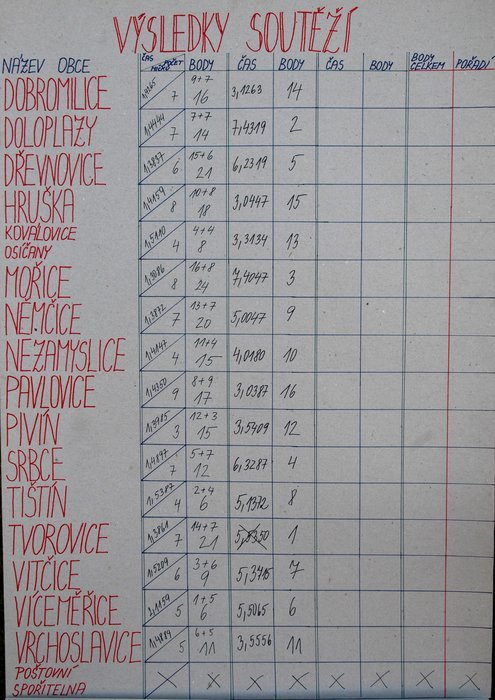 VÝSLEDKY SOUTĚŽÍ
NÁZEV OBCE ČAS POČET BODY ČAS BODY ČAS BODY BODY CELKEM POŘADÍ
DOBROMILICE 7 9+7 16 3,1263 14
DOLOPLAZY 1,4444 7 7+7 14 7,4319 2
DŘEVNOVICE 1,3837 6 15+6 21 6,2319 5
HRUŠKA 1,4159 8 10+8 18 3,0447 15
KOVALOVICE OSÍČANY 1,5110 4 4+4 8 3,3134 13
MOŘICE 1,3086 8 16+8 24 7,4047 3
NĚMČICE 1,3872 7 13+7 20 5,0047 9
NEZAMYSLICE 1,4147 4 11+4 15 4,0180 10
PAVLOVICE 1,4350 9 8+9 17 3,0387 16
PIVÍN 1,3915 3 12+3 15 3,5409 12
SRBCE 1,4897 7 5+7 12 6,3287 4
TIŠTÍN 1,5387 4 2+4 6 5,1372 8
TVOROVICE 1,3861 7 14+7 21 1
VITČICE 1,5209 6 3+6 9 5,3715 7
VÍCEMĚŘICE 5 1+5 6 5,5065 6
VRCHOSLAVICE 1,4889 5 6+5 11 3,5556 11
POŠTOVNÍ SPOŘITELNA X X X X X X X X